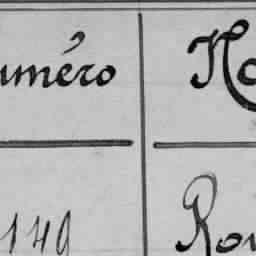 uméro No
140 Rou